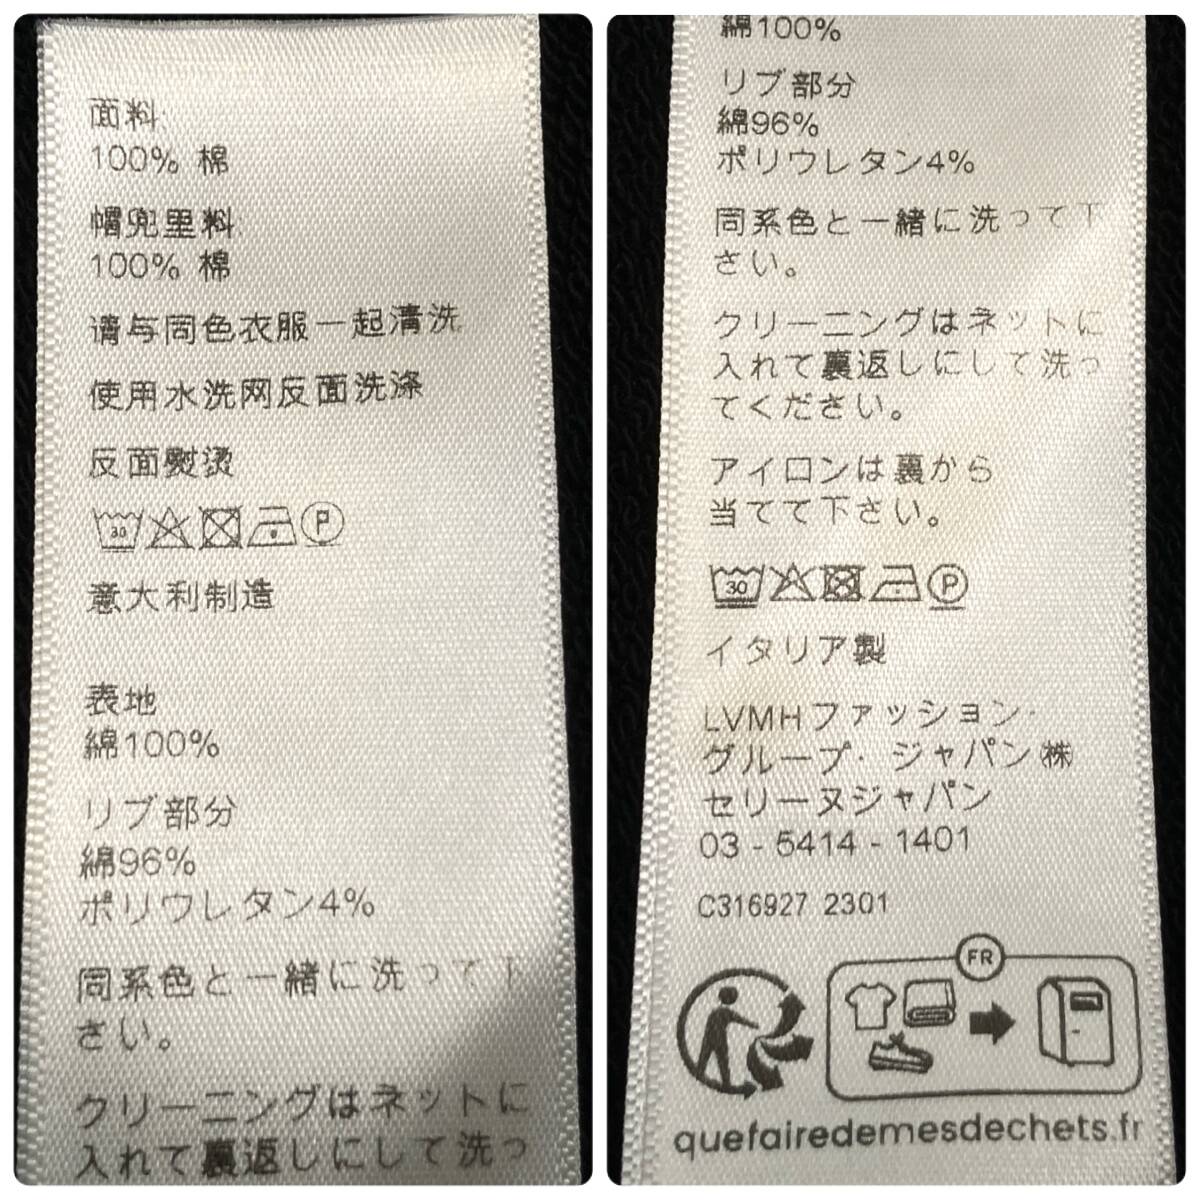 面料
100% 棉
帽兜里料
100% 棉
请与同色衣服一起清洗
使用水洗网反面洗涤
反面熨烫
30
P
意大利制造
表地
綿100%
リブ部分
綿96%
ポリウレタン4%
同系色と一緒に洗って下
さい。
クリーニングはネットに
入れて裏返しにして洗っ
綿100%
リブ部分
綿96%
ポリウレタン4%
同系色と一緒に洗って下
さい。
クリーニングはネットに
入れて裏返しにして洗っ
てください。
アイロンは裏から
当てて下さい。
30
P
イタリア製
LVMHファッション・
グループ・ジャパン㈱
セリーヌジャパン
03 - 5414 - 1401
C316927 2301
FR
quefairedemesdechets.fr